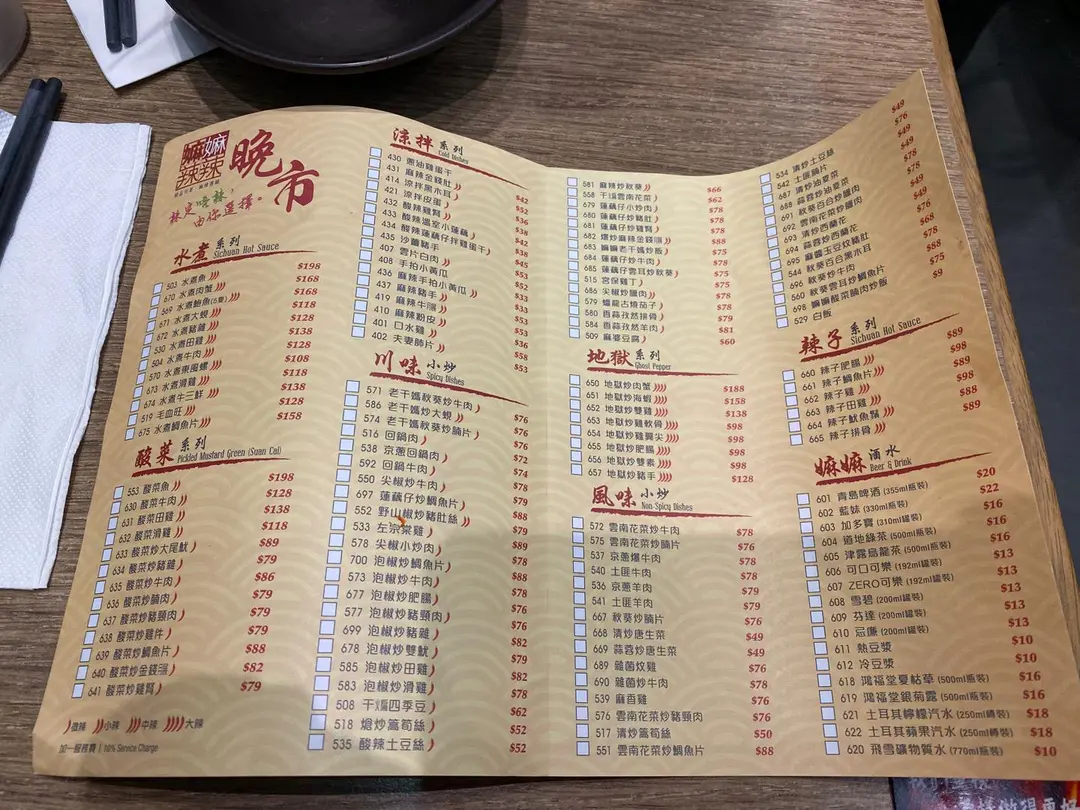 嫲嫲麻辣
晚市
辣定唔辣，
由你選擇。
水煮 系列
Sichuan Hot Sauce
503 水煮魚 $198
670 水煮肉蟹 $168
569 水煮鮑魚(5隻) $168
671 水煮大蜆 $118
672 水煮豬雜 $128
530 水煮田雞 $138
504 水煮牛肉 $128
570 水煮東風螺 $108
673 水煮滑雞 $118
674 水煮牛三鮮 $138
519 毛血旺 $128
675 水煮鯛魚片 $158
酸菜 系列
Pickled Mustard Green (Suan Cai)
553 酸菜魚 $198
630 酸菜牛肉 $128
631 酸菜田雞 $138
632 酸菜滑雞 $118
633 酸菜炒大尾魷 $89
634 酸菜炒豬雜 $79
635 酸菜炒牛肉 $86
636 酸菜炒腩肉 $79
637 酸菜炒豬頸肉 $79
638 酸菜炒雞件 $79
639 酸菜炒鯛魚片 $88
640 酸菜炒金錢膶 $82
641 酸菜炒雞腎 $79
微辣 小辣 中辣 大辣
加一服務費 | 10% Service Charge
涼拌 系列
Cold Dishes
430 蔥油雞蛋干
431 麻辣金錢肚
414 涼拌黑木耳
421 涼拌皮蛋
432 酸辣雞腎
433 酸辣溫室小蓮藕
434 酸辣蓮藕仔拌雞蛋干
435 沙薑豬手
407 雲片白肉
408 手拍小黃瓜
436 麻辣手拍小黃瓜
437 麻辣豬手
419 麻辣牛腱
410 麻辣粉皮
401 口水雞
402 夫妻肺片
川味 小炒
Spicy Dishes
571 老干媽秋葵炒牛肉 $76
586 老干媽炒大蜆 $76
574 老干媽秋葵炒腩片 $76
516 回鍋肉
538 京蔥回鍋肉
592 回鍋牛肉
550 尖椒炒牛肉
697 蓮藕仔炒鯛魚片
552 野山椒炒豬肚絲
533 左宗棠雞
578 尖椒小炒肉
700 泡椒炒鯛魚片
573 泡椒炒牛肉
677 泡椒炒肥腸
577 泡椒炒豬頸肉
699 泡椒炒豬雜
678 泡椒炒雙魷
585 泡椒炒田雞
583 泡椒炒滑雞 $78
508 干煸四季豆 $62
518 熗炒萵筍絲 $52
535 酸辣土豆絲 $52
581 麻辣炒秋葵 $66
558 干煸雲南花菜 $62
679 蓮藕仔小炒肉 $78
680 蓮藕仔炒豬肚
681 蓮藕仔炒雞腎
682 爆炒麻辣金錢膶
683 嫲嫲老干媽炒飯
684 蓮藕仔炒牛肉
685 蓮藕仔雲耳炒秋葵
515 宮保雞丁
686 尖椒炒臘肉
579 蠻扁古燒茄子
580 香蒜孜然排骨
584 香蒜孜然羊肉 $81
509 麻婆豆腐 $60
地獄 系列
Ghost Pepper
650 地獄炒肉蟹 $188
651 地獄炒海蝦 $158
652 地獄炒雙雞 $138
653 地獄炒雞軟骨 $98
654 地獄炒雞翼尖 $98
655 地獄炒肥腸 $98
656 地獄炒雙素 $98
657 地獄炒豬手 $128
風味 小炒
Non-Spicy Dishes
572 雲南花菜炒牛肉 $78
575 雲南花菜炒腩片 $76
537 京蔥爆牛肉 $78
540 土匪牛肉 $78
536 京蔥羊肉 $79
541 土匪羊肉 $79
667 秋葵炒腩片 $76
668 清炒唐生菜 $49
669 蒜蓉炒唐生菜 $49
689 雜菌炆雞 $76
690 雜菌炒牛肉 $78
539 麻香雞 $76
576 雲南花菜炒豬頸肉 $76
517 清炒萵筍絲 $50
551 雲南花菜炒鯛魚片 $88
534 清炒土豆絲 $49
542 土匪腩片 $76
687 清炒油麥菜 $49
688 蒜蓉炒油麥菜 $49
691 秋葵百合炒臘肉 $78
692 雲南花菜炒臘肉 $78
693 清炒西蘭花 $49
694 蒜蓉炒西蘭花 $49
695 麻醬玉豆炆豬肚 $76
544 秋葵百合黑木耳 $68
696 秋葵炒牛肉 $78
560 秋葵雲耳炒鯛魚片 $88
698 嫲嫲酸菜腩肉炒飯 $75
529 白飯 $9
辣子 系列
Sichuan Hot Sauce
660 辣子肥腸 $89
661 辣子鯛魚片 $98
662 辣子雞 $89
663 辣子田雞 $98
664 辣子魷魚鬚 $88
665 辣子排骨 $89
嫲嫲 酒水
Beer & Drink
601 青島啤酒 (355ml瓶裝) $20
602 藍妹 (330ml瓶裝) $22
603 加多寶 (310ml罐裝) $16
604 道地綠茶 (500ml瓶裝) $16
605 津露烏龍茶 (500ml瓶裝) $16
606 可口可樂 (192ml罐裝) $13
607 ZERO可樂 (192ml罐裝) $13
608 雪碧 (200ml罐裝) $13
609 芬達 (200ml罐裝) $13
610 忌廉 (200ml罐裝) $13
611 熱豆漿 $10
612 冷豆漿 $10
618 鴻福堂夏枯草 (500ml瓶裝) $16
619 鴻福堂銀菊露 (500ml瓶裝) $16
621 土耳其檸檬汽水 (250ml樽裝) $18
622 土耳其蘋果汽水 (250ml樽裝) $18
620 飛雪礦物質水 (770ml瓶裝) $10